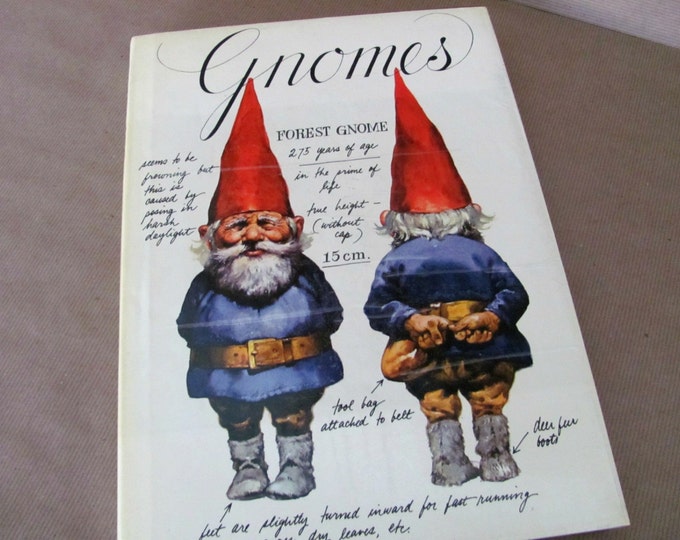 Gnomes
FOREST GNOME
275 years of age
in the prime of
life...
true height—
(without
cap)
15 cm.
seems to be
frowning but
this is
caused by
posing in
harsh
daylight
tool bag
attached to belt
deer fur
boots
feet are slightly turned inward for fast running
dry leaves, etc.